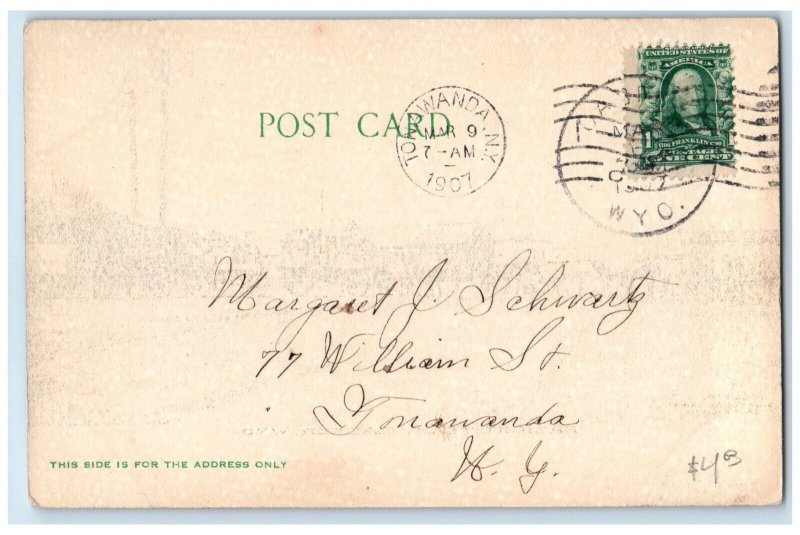 POST CARD
TONAWANDA, N.Y.
MAR 9
7-AM
1907
WYO.
UNITED STATES OF
AMERICA
1
FRANKLIN
POSTAGE
ONE CENT
Margaret J. Schwartz
77 William St.
Tonawanda
N. Y.
THIS SIDE IS FOR THE ADDRESS ONLY